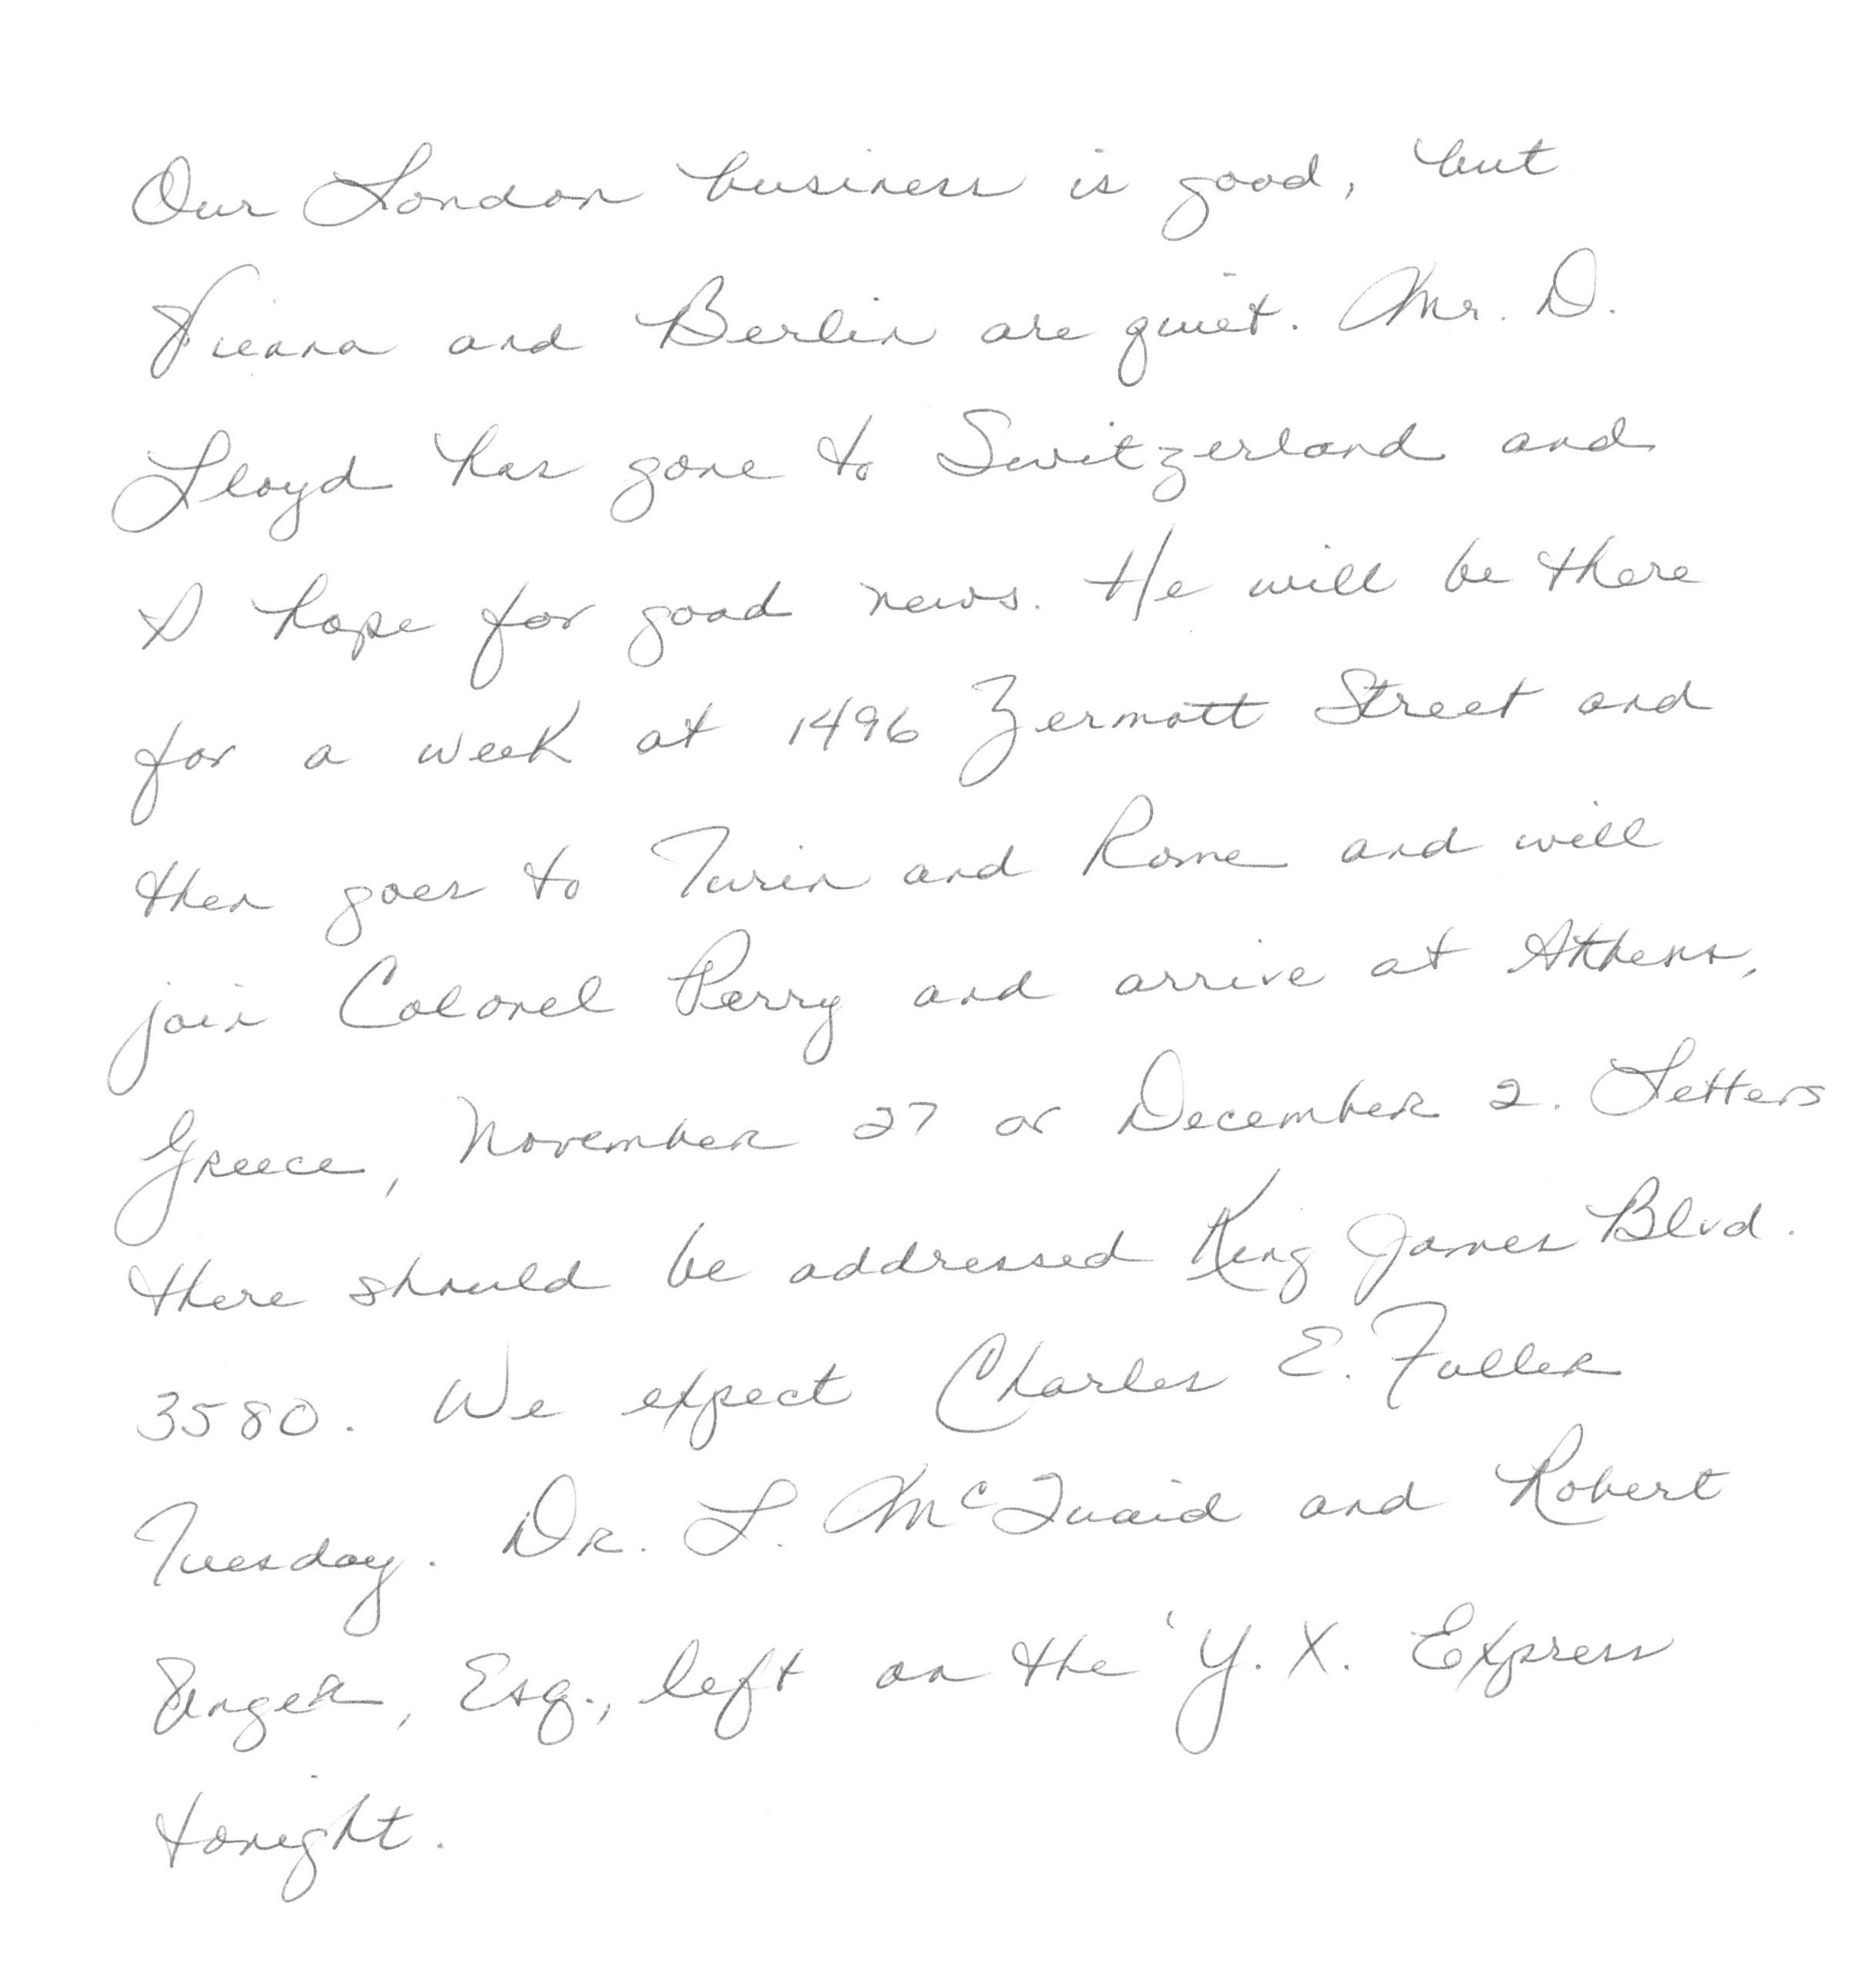 Our London business is good, but
Vienna and Berlin are quiet. Mr. D.
Lloyd has gone to Switzerland and
I hope for good news. He will be there
for a week at 1496 Zermott Street and
then goes to Turin and Rome and will
join Colonel Perry and arrive at Athens,
Greece, November 27 or December 2. Letters
there should be addressed King James Blvd.
3580. We expect Charles E. Fuller
Tuesday. Dr. L. McQuaid and Robert
Unger, Esq., left on the 'Y. X. Express
tonight.